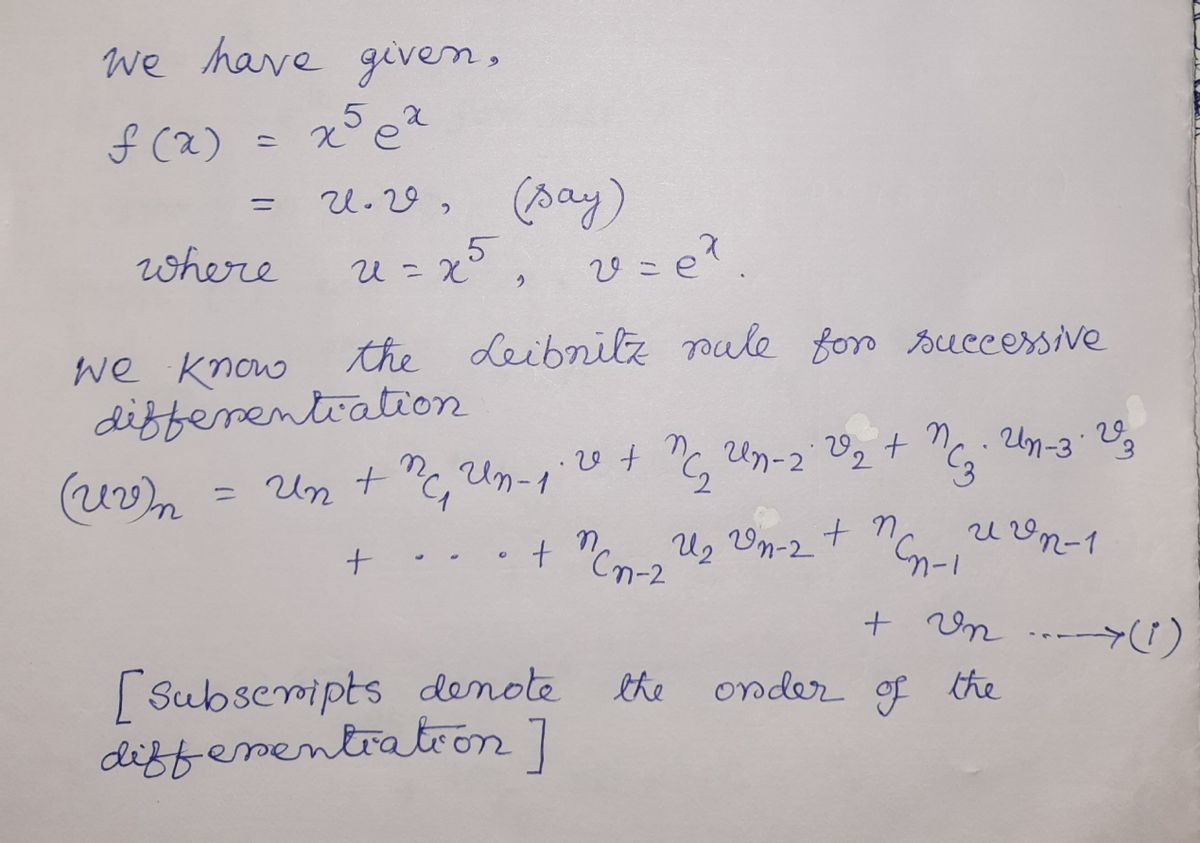 We have given,
f(x) = x⁵eˣ
= u.v, (say)
where u = x⁵, v = eˣ.
We know the Leibnitz rule for successive
differentiation
(uv)ₙ = uₙ + ⁿC₁ uₙ₋₁·v + ⁿC₂ uₙ₋₂·v₂ + ⁿC₃·uₙ₋₃·v₃
+ . . . . + ⁿCₙ₋₂ u₂ vₙ₋₂ + ⁿCₙ₋₁ u vₙ₋₁
+ vₙ ...⟶(i)
[Subscripts denote the order of the
differentiation]